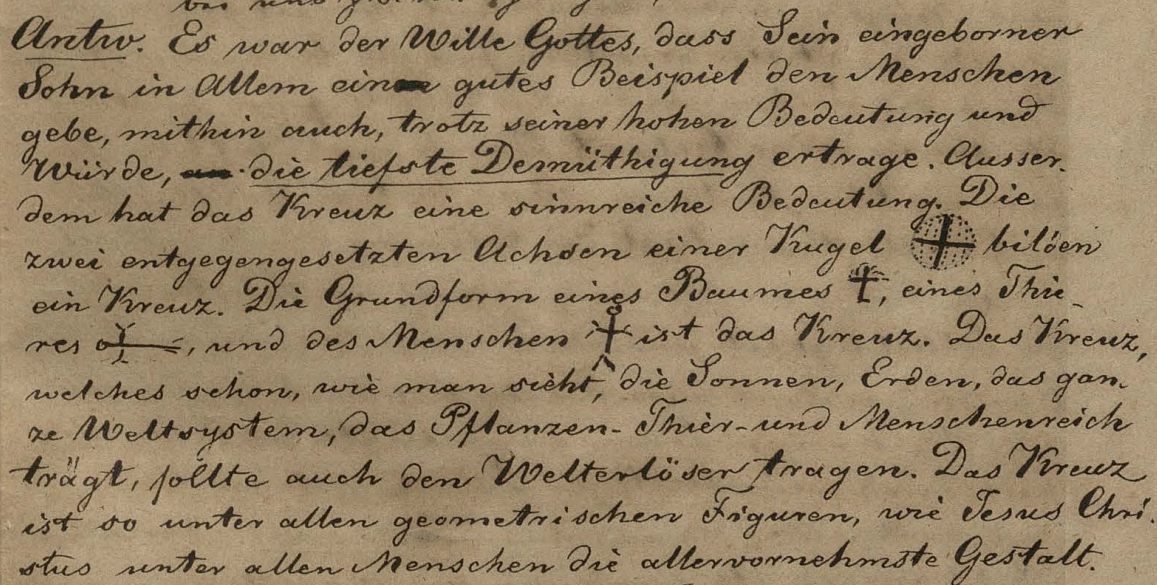 Antw. Es war der Wille Gottes, dass Sein eingeborner
Sohn in Allem ein gutes Beispiel den Menschen
gebe, mithin auch, trotz seiner hohen Bedeutung und
Würde, die tiefste Demüthigung ertrage. Ausser.
dem hat das Kreuz eine sinnreiche Bedeutung. Die
zwei entgegengesetzten Achsen einer Kugel bilden
ein Kreuz. Die Grundform eines Baumes, eines Thie-
res, und des Menschen ist das Kreuz. Das Kreuz,
welches schon, wie man sieht, die Sonnen, Erden, das gan-
ze Weltsystem, das Pflanzen- Thier- und Menschenreich
trägt, sollte auch den Welterlöser tragen. Das Kreuz
ist so unter allen geometrischen Figuren, wie Jesus Chri.
stus unter allen Menschen die allervornehmste Gestalt.